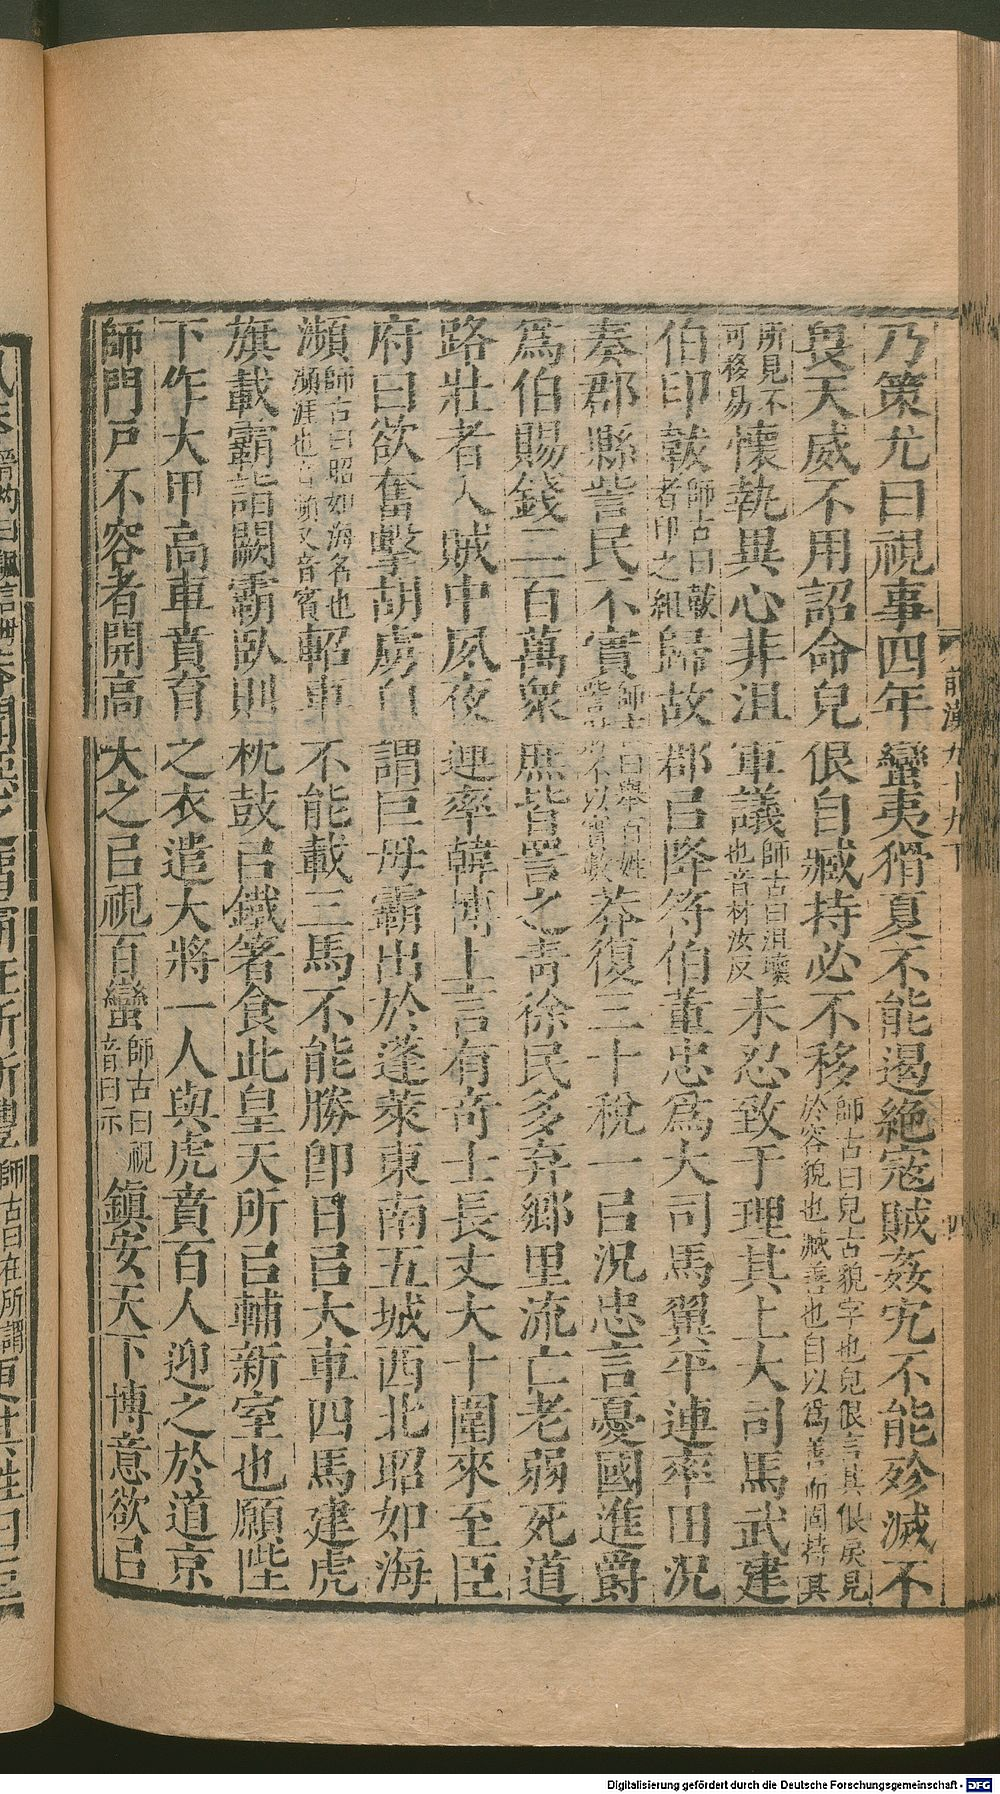 乃策尤曰視事四年蠻夷猾夏不能遏絶寇賊姦宄不能殄滅不
畏天威不用詔命皃佷自臧持必不移師古曰皃古貌字也皃佷言其佷戾見於容貌也臧善也自以爲善而固持其
所見不可移易懷執異心非沮軍議師古曰沮壞也音材汝反未忍致于理其上大司馬武建
伯印韍師古曰韍者印之組歸故郡㠯降符伯董忠爲大司馬翼平連率田況
奏郡縣訾民不實師古曰舉百姓訾財不以實數莽復三十稅一㠯況忠言憂國進爵
爲伯賜錢二百萬衆庶皆詈之靑徐民多弃鄉里流亡老弱死道
路壯者入賊中夙夜連率韓博上言有奇士長丈大十圍來至臣
府曰欲奮擊胡虜自謂巨毋霸出於蓬萊東南五城西北昭如海
瀕師古曰昭如海名也瀕涯也音頻又音賓軺車不能載三馬不能勝卽日㠯大車四馬建虎
旗載霸詣闕霸臥則枕鼓㠯鐵箸食此皇天所㠯輔新室也願陛
下作大甲高車賁育之衣遣大將一人與虎賁百人迎之於道京
師門戶不容者開高大之㠯視百蠻師古曰視音曰示鎮安天下博意欲㠯
前漢九十九下
四
Digitalisierung gefördert durch die Deutsche Forschungsgemeinschaft - DFG